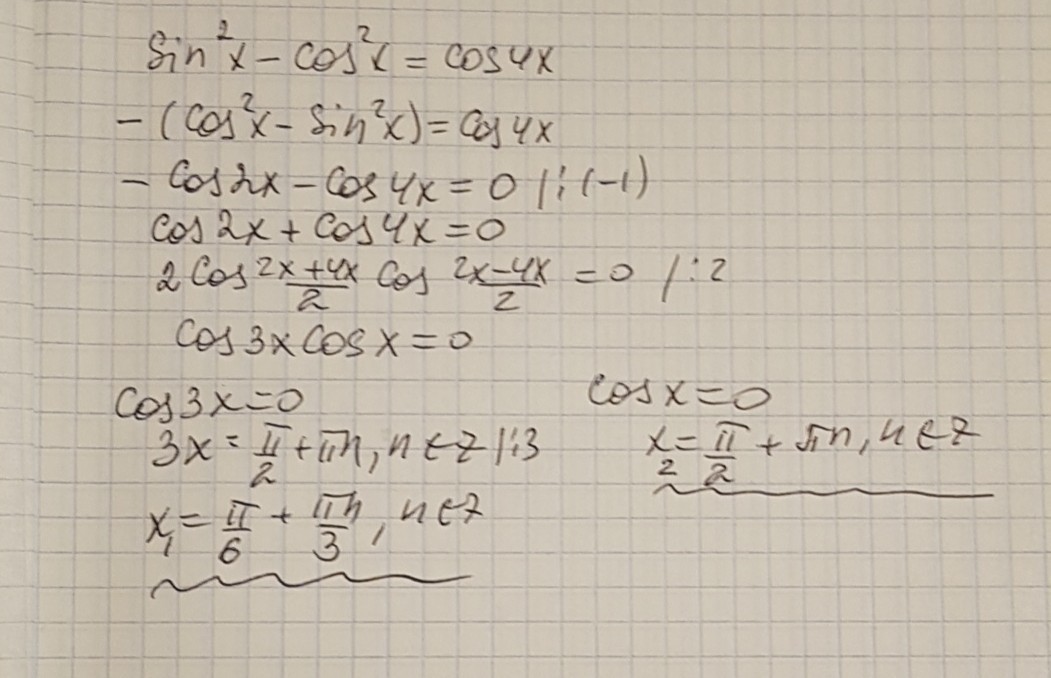 sin²x − cos²x = cos4x
−(cos²x − sin²x) = cos4x
− cos2x − cos4x = 0 |:(−1)
cos2x + cos4x = 0
2cos (2x+4x)/2 cos (2x−4x)/2 = 0 /:2
cos3x cosx = 0
cos3x = 0
3x = π/2 + πn, n ∈ Z |:3
x₁ = π/6 + πn/3, n ∈ Z
cosx = 0
x₂ = π/2 + πn, n ∈ Z